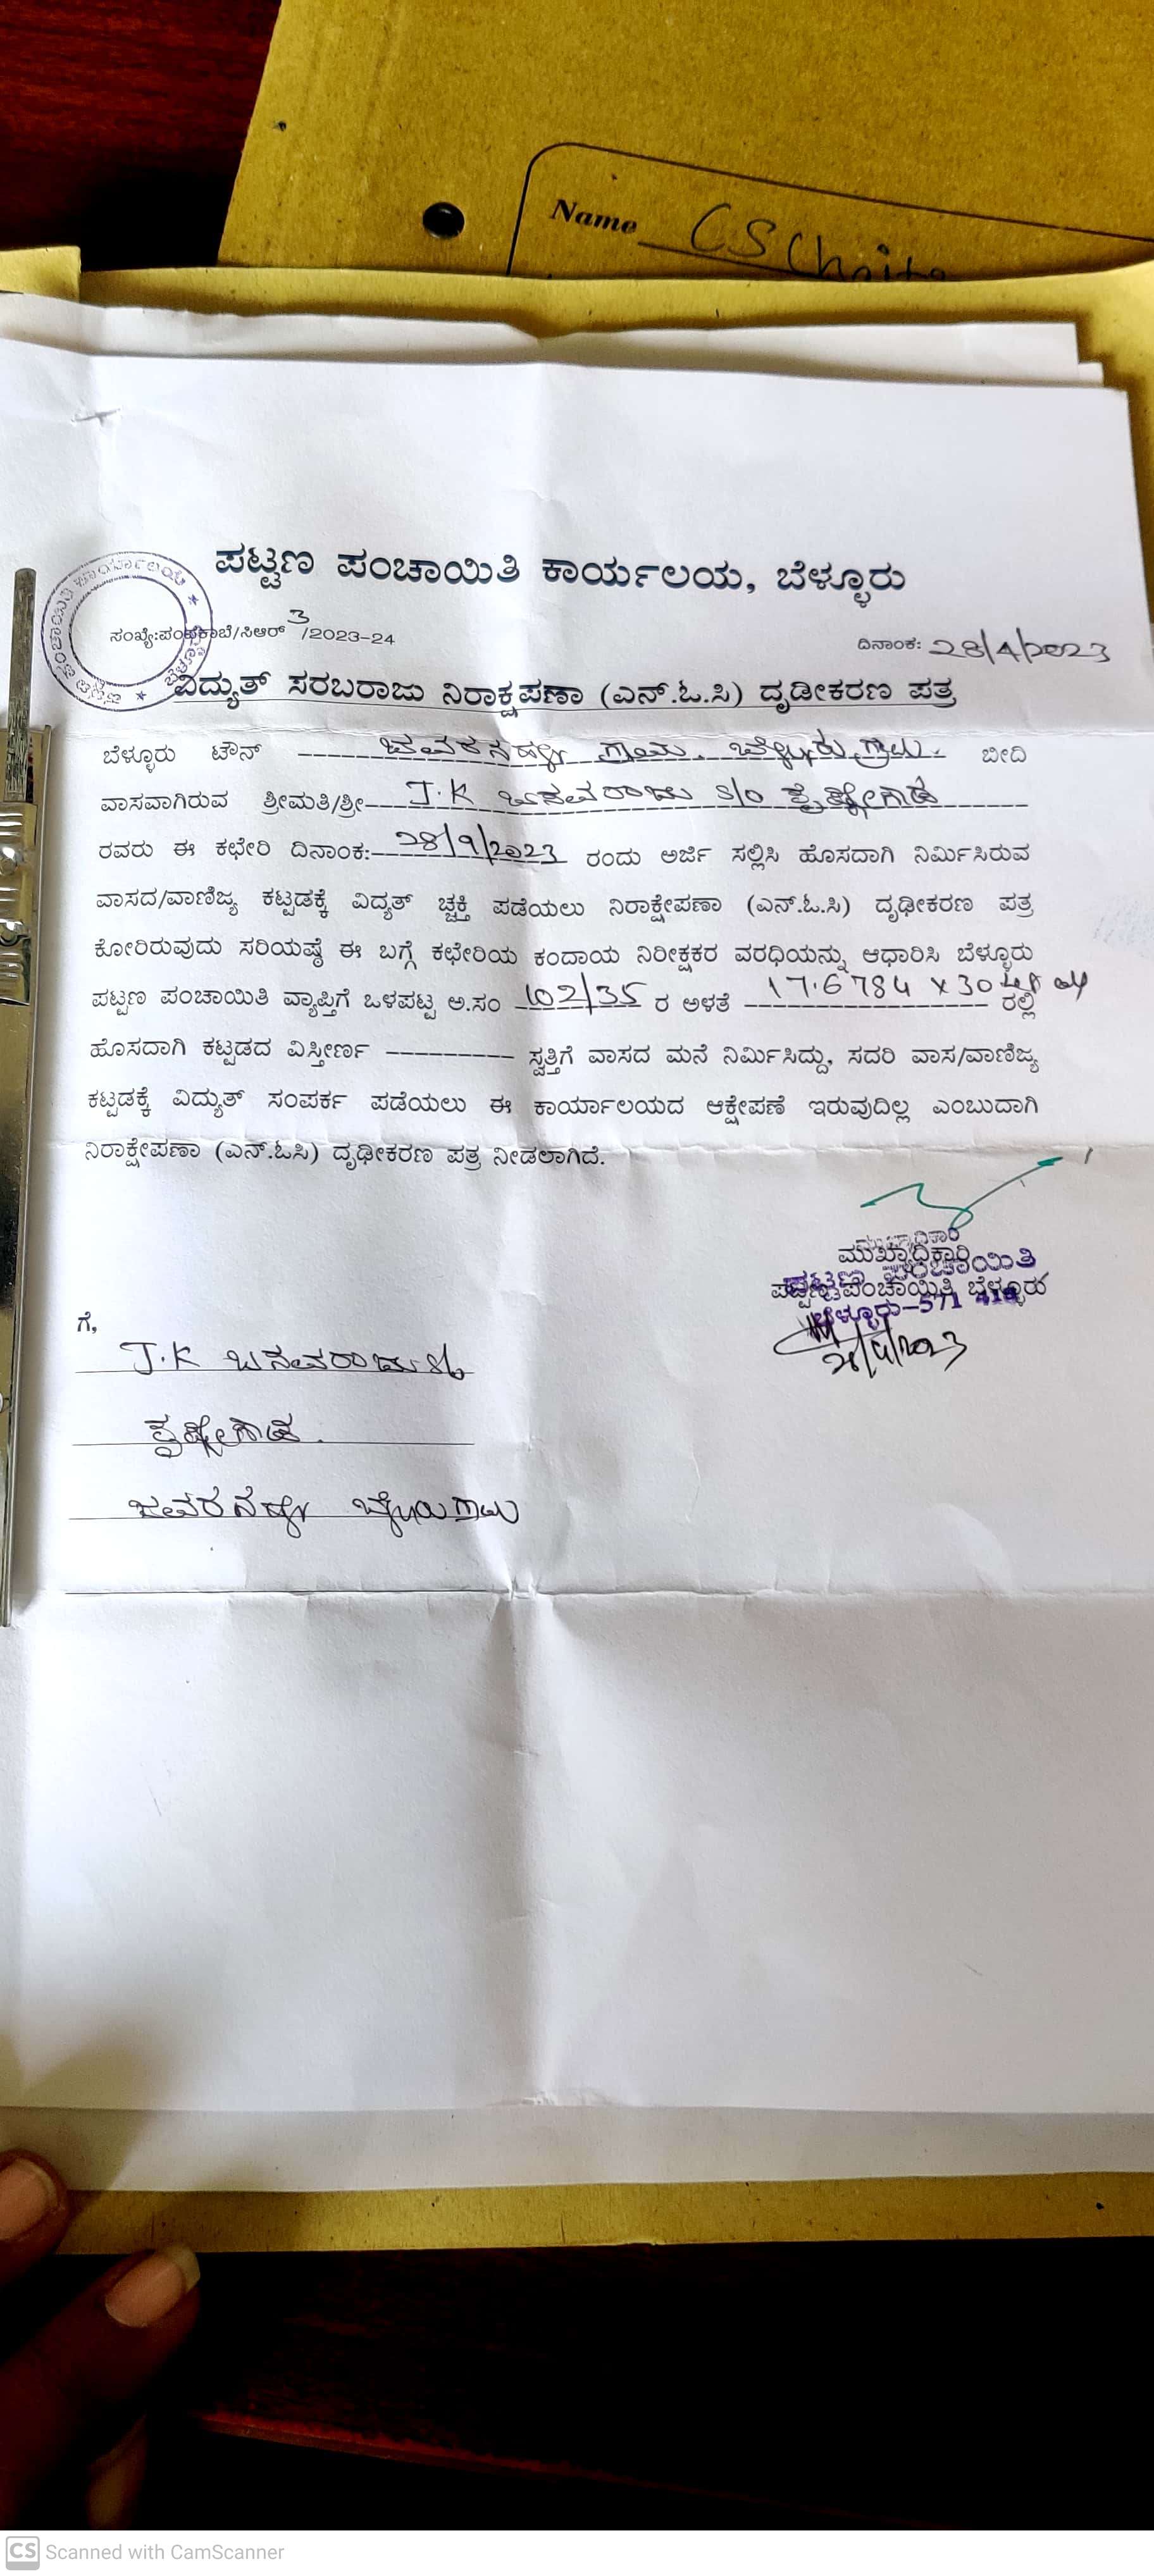 Name CS Chaita
ಪಟ್ಟಣ ಪಂಚಾಯಿತಿ ಕಾರ್ಯಲಯ, ಬೆಳ್ಳೂರು
ಸಂಖ್ಯೆ:ಪಂಪಕಾಬೆ/ಸಿಆರ್ 3/2023-24
ದಿನಾಂಕ: 28/4/2023
ವಿದ್ಯುತ್ ಸರಬರಾಜು ನಿರಾಕ್ಷಪಣಾ (ಎನ್.ಓ.ಸಿ) ದೃಡೀಕರಣ ಪತ್ರ
ಬೆಳ್ಳೂರು ಟೌನ್ ಜವರನಹಳ್ಳಿ ಗ್ರಾಮ. ಬೆಳ್ಳೂರು ಬೀದಿ
ವಾಸವಾಗಿರುವ ಶ್ರೀಮತಿ/ಶ್ರೀ J.K ಬಸವರಾಜು S/O
ರವರು ಈ ಕಛೇರಿ ದಿನಾಂಕ: 28/9/2023 ರಂದು ಅರ್ಜಿ ಸಲ್ಲಿಸಿ ಹೊಸದಾಗಿ ನಿರ್ಮಿಸಿರುವ
ವಾಸದ/ವಾಣಿಜ್ಯ ಕಟ್ಟಡಕ್ಕೆ ವಿದ್ಯತ್ ಚ್ಚಕ್ತಿ ಪಡೆಯಲು ನಿರಾಕ್ಷೇಪಣಾ (ಎನ್.ಓ.ಸಿ) ದೃಢೀಕರಣ ಪತ್ರ
ಕೋರಿರುವುದು ಸರಿಯಷ್ಠೆ ಈ ಬಗ್ಗೆ ಕಛೇರಿಯ ಕಂದಾಯ ನಿರೀಕ್ಷಕರ ವರಧಿಯನ್ನು ಆಧಾರಿಸಿ ಬೆಳ್ಳೂರು
ಪಟ್ಟಣ ಪಂಚಾಯಿತಿ ವ್ಯಾಪ್ತಿಗೆ ಒಳಪಟ್ಟ ಅ.ಸಂ 102/35 ರ ಅಳತೆ 17.6784 x 30 ರಲ್ಲಿ
ಹೊಸದಾಗಿ ಕಟ್ಟಡದ ವಿಸ್ತೀರ್ಣ --------- ಸ್ವತ್ತಿಗೆ ವಾಸದ ಮನೆ ನಿರ್ಮಿಸಿದ್ದು, ಸದರಿ ವಾಸ/ವಾಣಿಜ್ಯ
ಕಟ್ಟಡಕ್ಕೆ ವಿದ್ಯುತ್ ಸಂಪರ್ಕ ಪಡೆಯಲು ಈ ಕಾರ್ಯಾಲಯದ ಆಕ್ಷೇಪಣೆ ಇರುವುದಿಲ್ಲ ಎಂಬುದಾಗಿ
ನಿರಾಕ್ಷೇಪಣಾ (ಎನ್.ಓಸಿ) ದೃಢೀಕರಣ ಪತ್ರ ನೀಡಲಾಗಿದೆ.
ಮುಖ್ಯಾಧಿಕಾರಿ
ಪಟ್ಟಣ ಪಂಚಾಯಿತಿ ಬೆಳ್ಳೂರು
ಬೆಳ್ಳೂರು-571 418
28/4/2023
ಗೆ,
J.K ಬಸವರಾಜು S/o
ಜವರನಹಳ್ಳಿ
CS Scanned with CamScanner